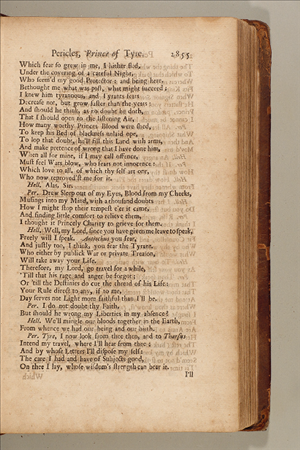 Pericles, Prince of Tyre. 2855
Which fear so grew in me, I hither fled,
Under the covering of a careful Night,
Who seem'd my good Protector; and being here,
Bethought me what was past, what might succeed;
I knew him tyrannous, and Tyrants fears
Decrease not, but grow faster than the years:
And should he think, as no doubt he doth,
That I should open to the listening Air,
How many worthy Princes Blood were shed,
To keep his Bed of blackness unlaid ope,
To lop that doubt, he'll fill this Land with arms,
And make pretence of wrong that I have done him,
When all for mine, if I may call offence,
Must feel Wars blow, who fears not innocence:
Which love to all, of which thy self art one,
Who now reprovedst me for it.
Hell. Alas, Sir.
Per. Drew Sleep out of my Eyes, Blood from my Cheeks,
Musings into my Mind, with a thousand doubts
How I might stop their tempest e'er it came,
And finding little comfort to relieve them,
I thought it Princely Charity to grieve for them.
Hell. Well, my Lord, since you have given me leave to speak,
Freely will I speak. Antiochus you fear,
And justly too, I think, you fear the Tyrant,
Who either by publick War or private Treason,
Will take away your Life.
Therefore, my Lord, go travel for a while,
'Till that his rage and anger be forgot;
Or 'till the Destinies do cut the thread of his Life:
Your Rule direct to any, if to me,
Day serves not Light more faithful than I'll be.
Per. I do not doubt thy Faith.
But should he wrong my Liberties in my absence?
Hell. We'll mingle our bloods together in the Earth,
From whence we had our being and our birth.
Per. Tyre, I now look from thee then, and to Tharsus
Intend my travel, where I'll hear from thee;
And by whose Letters I'll dispose my self:
The care I had and have of Subjects good,
On thee I lay, whose wisdom's strength can bear it.
I'll